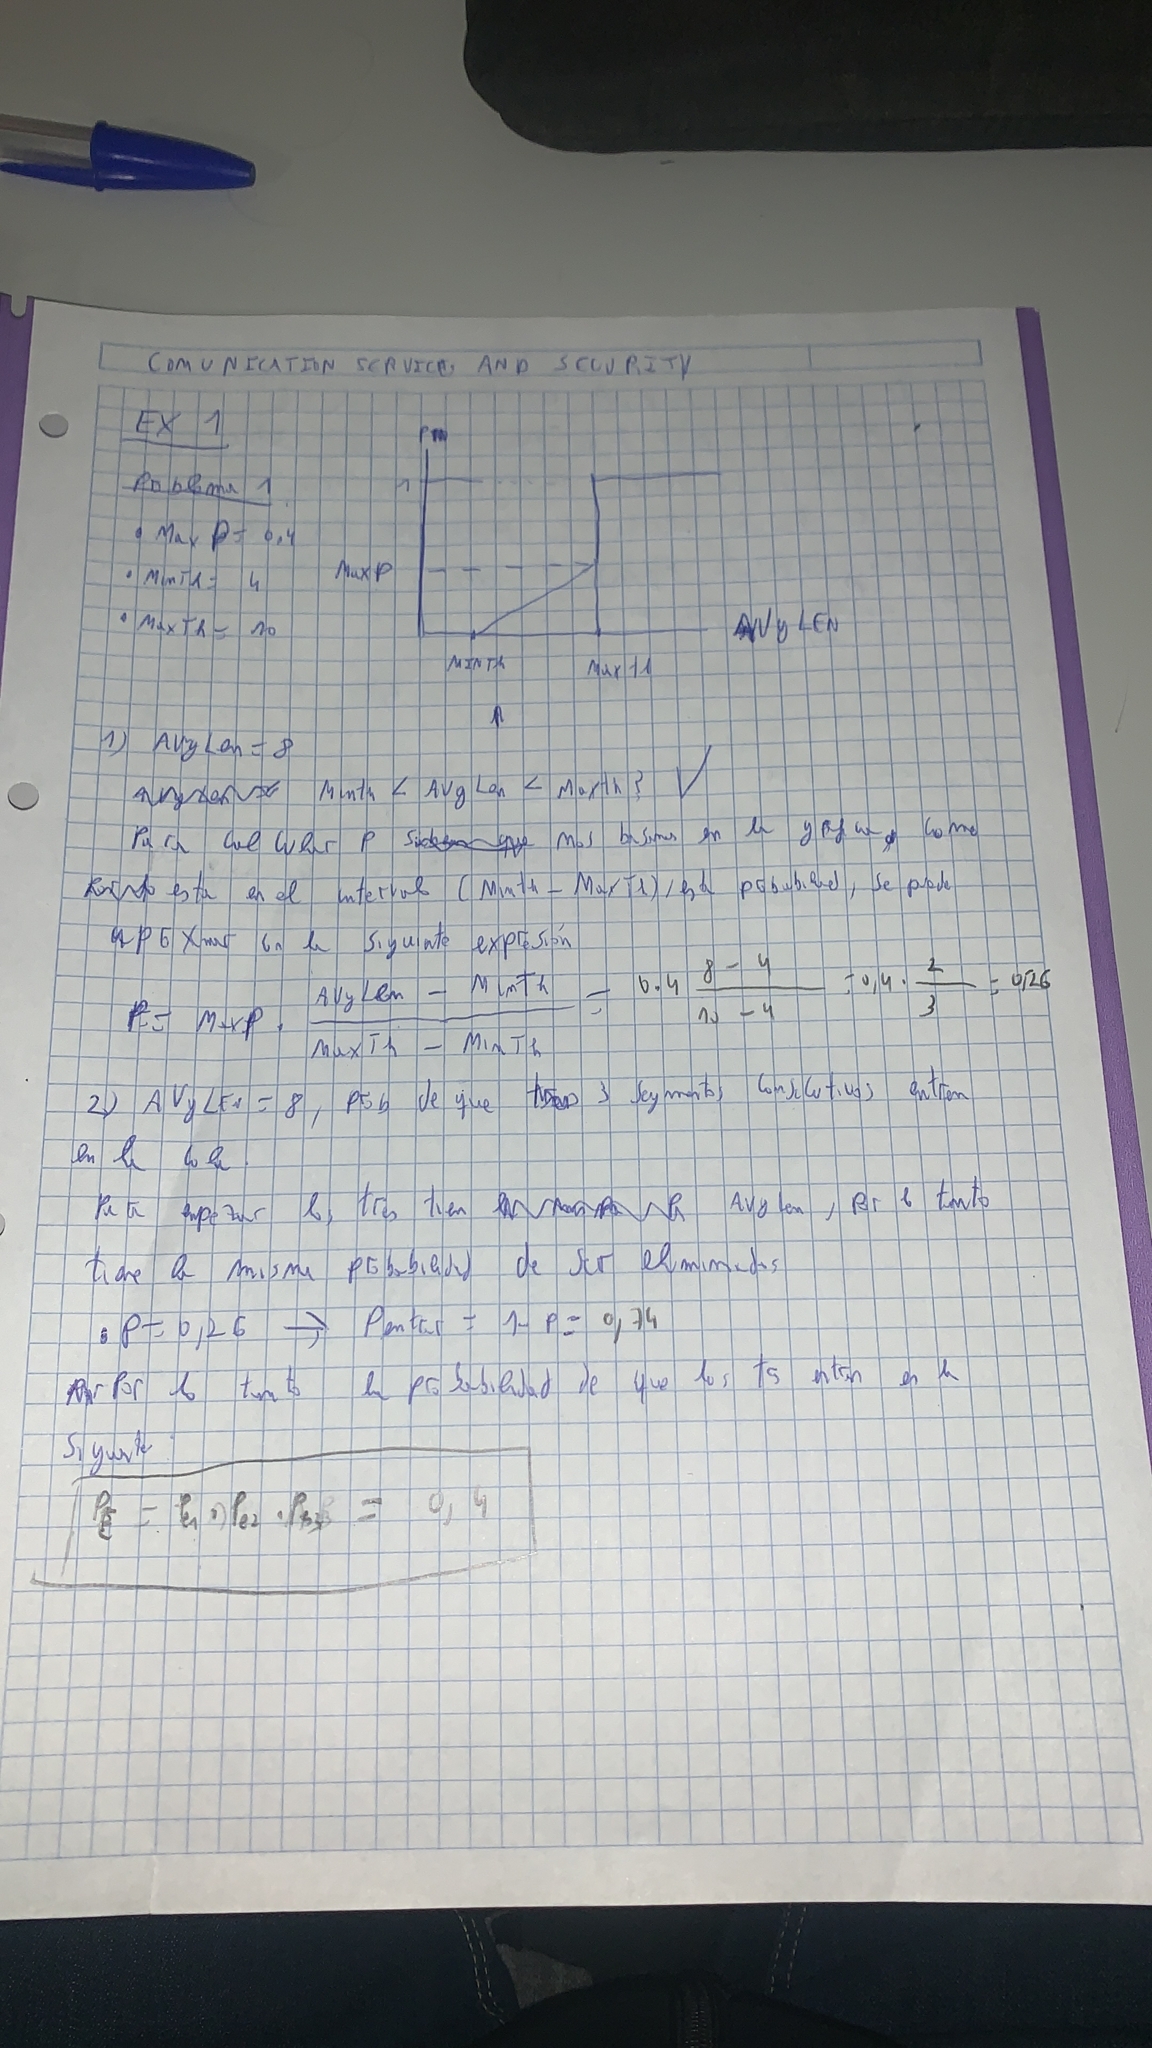 COMUNICATION SERVICES AND SECURITY
EX 1
Problema 1
• Max P = 0,4
• MinTh = 4
• MaxTh = 10
1
Max P
AVgLEN
MINTh
MaxTh
1) AVgLen = 8
Minth < AVgLen < Maxth? ✓
Para calcular P nos basamos en la grafica, como
esta en el intervalo (Minth - MaxTh), esta probabilidad, se puede
aproximar en la siguiente expresión
P = MaxP · (AVgLen - MinTh) / (MaxTh - MinTh) = 0.4 (8 - 4) / (10 - 4) = 0,4 · 2/3 = 0,26
2) AVgLEn = 8, prob de que 3 segmentos consecutivos entren
en la cola.
Para empezar los tres tien AVgLen, por lo tanto
tiene la misma probabilidad de ser eliminados
• P = 0,26 → Pentrar = 1 - P = 0,74
Por lo tanto la probabilidad de que los tres entren en la
siguiente:
PE = Pe1 · Pe2 · Pe3 = 0,4